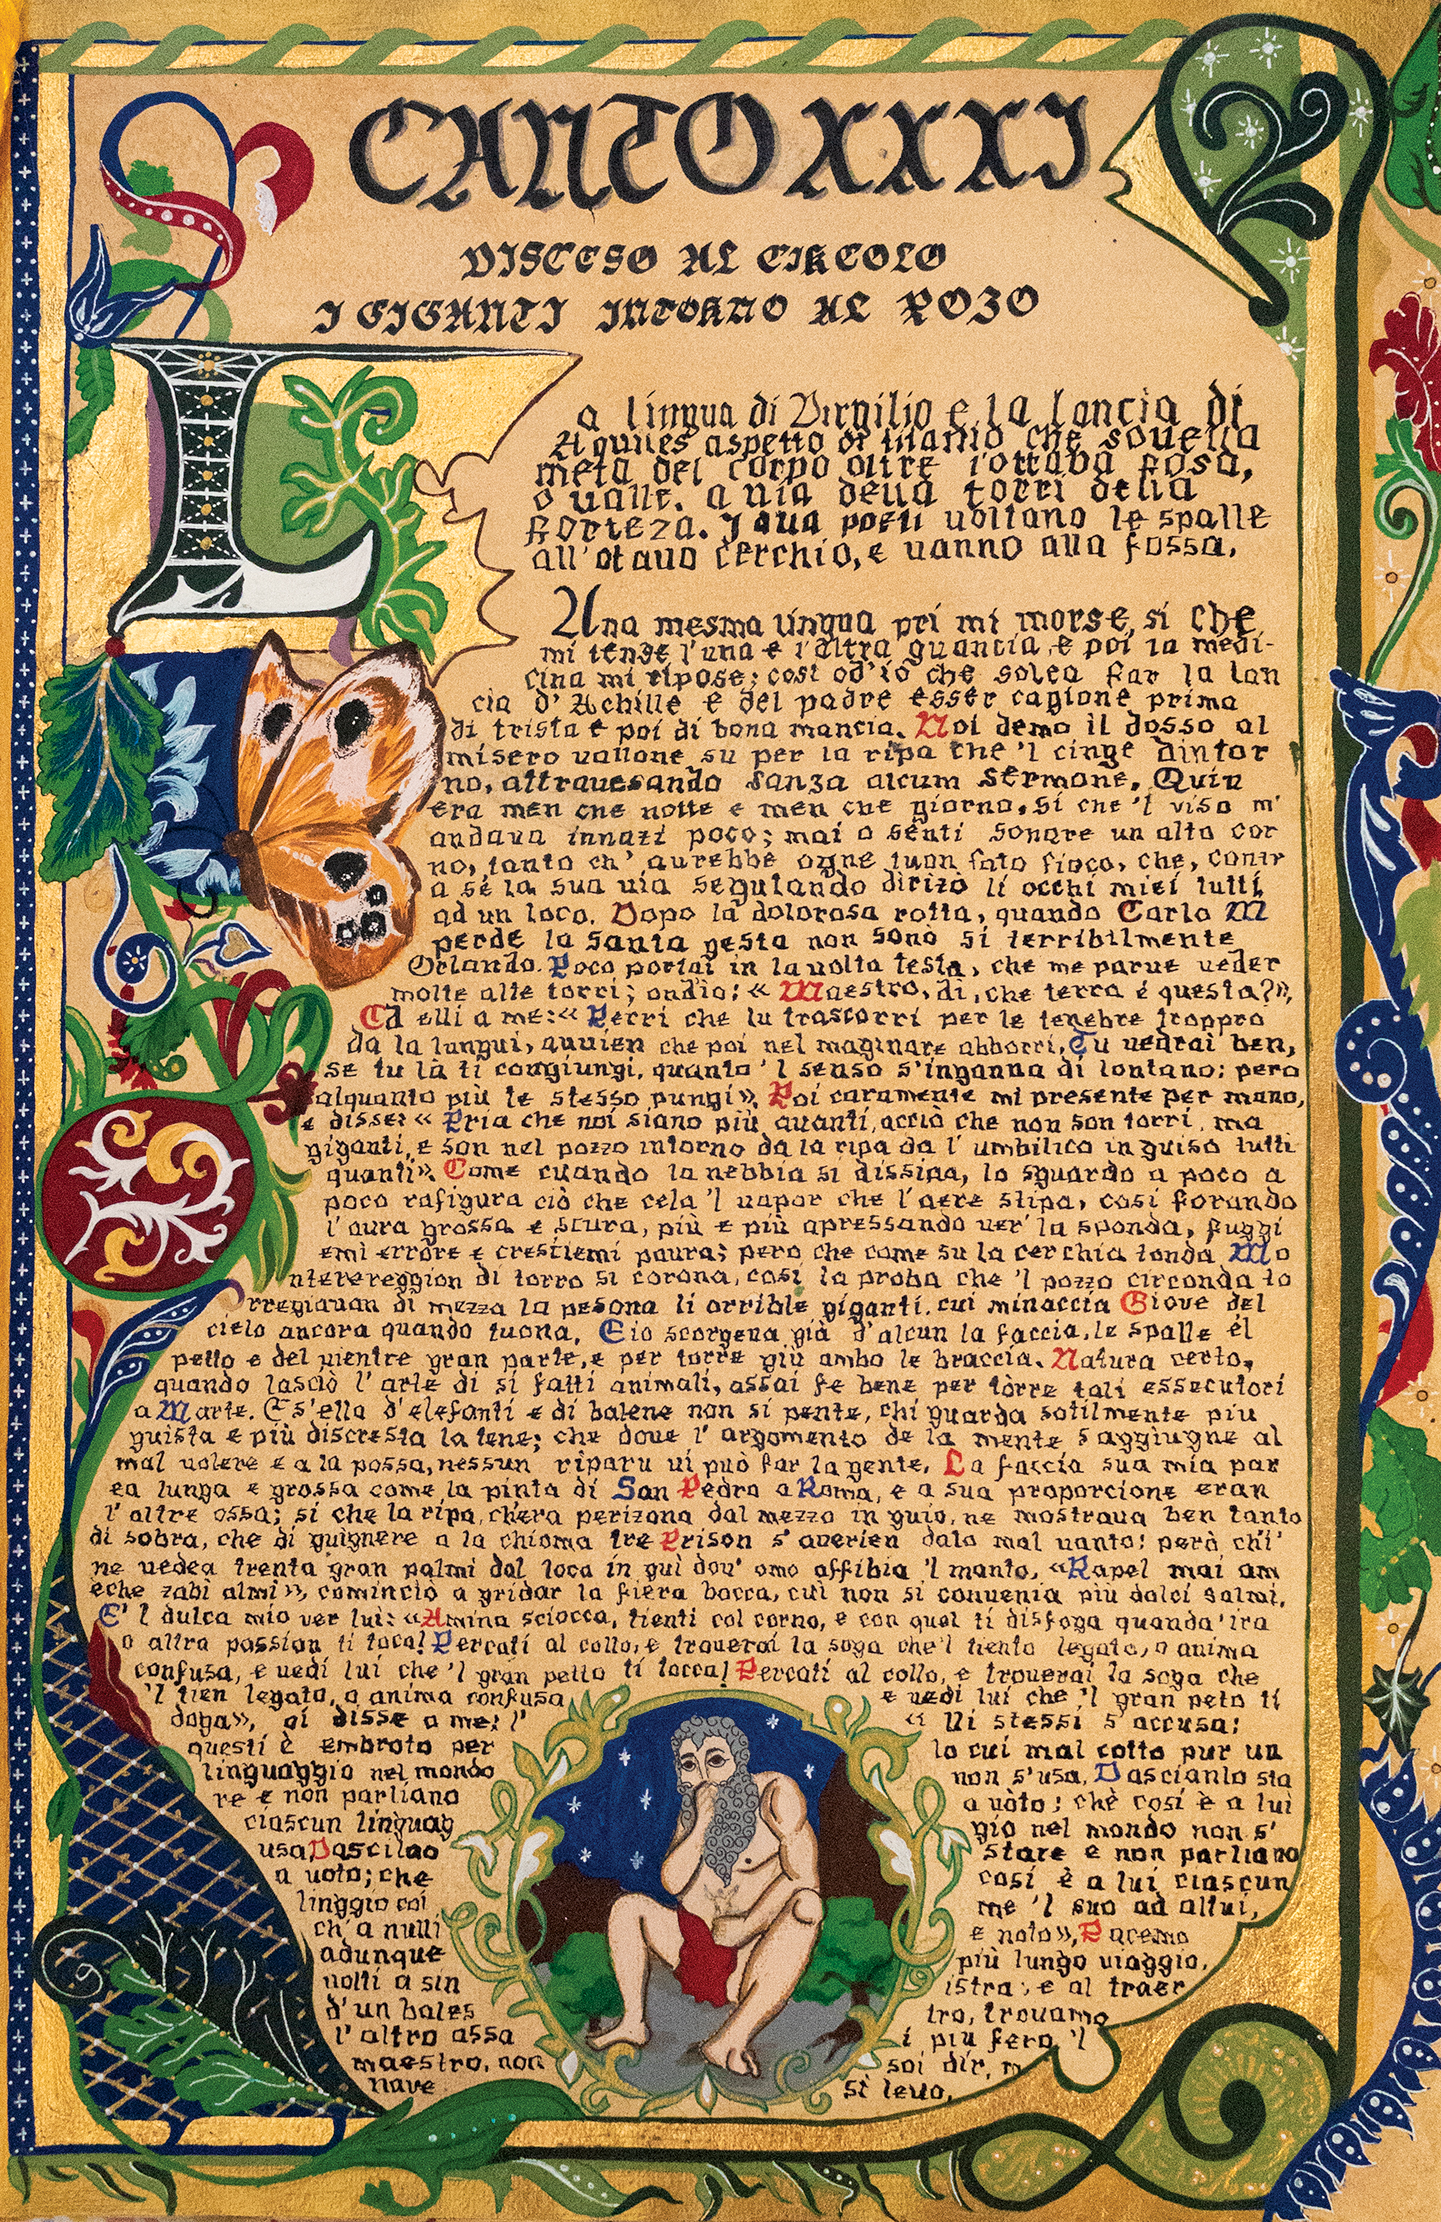 CANTO XXXI
DISCESO AL CIRCOLO
I GIGANTI INTORNO AL POZO
La lingua di Virgilio e la lancia di
Aquiles aspetto di titanio che sovella
meta del corpo oltre l'ottava fosa,
o valle. a via della torri della
forteza. I dua poeti voltano le spalle
all'otavo cerchio, e vanno alla fossa.
Una mesma lingua pri mi morse, si che
mi tende l'una e l'altra guancia, e poi la medi-
cina mi ripose; cosi od'io che solea far la lan
cia d'Achille e del padre esser cagione prima
di trista e poi di bona mancia. Noi demo il dosso al
misero vallone su per la ripa che 'l cinge dintor
no, attravesando sanza alcum sermone. Quiv
era men che notte e men che giorno, si che 'l viso m'
andava innazi poco; mai o senti sonare un alto cor
no, tanto ch' avrebbe ogne tuon fato fioco, che, contr
a sé la sua via seguitando dirizò li occhi miei tutti
ad un loco. Dopo la dolorosa rotta, quando Carlo M
perde la santa gesta non sonò si terribilmente
Orlando. Poco portai in la volta testa, che me parve veder
molte alte torri; ond'io: « Maestro, di, che terra è questa?»,
Ed elli a me: « Perri che tu trascorri per le tenebre troppro
da la lungui, avvien che poi nel maginare abborri. Tu vedrai ben,
se tu là ti congiungi, quanto 'l senso s'inganna di lontano; pero
alquanto più te stesso pungi». Poi caramente mi presente per mano,
e disse: « Pria che noi siano più avanti, acciò che non son torri, ma
giganti, e son nel pozzo intorno da la ripa da l' umbilico in guiso tutti
quanti». Come cuando la nebbia si dissipa, lo sguardo a poco a
poco rafigura ciò che cela 'l vapor che l'aere stipa, cosi forando
l'aura grossa e scura, più e più apressando ver' la sponda, fuggi
emi errore e crescíemi paura; pero che come su la cerchia tonda Mo
nterereggion di torro si corona, così la proba che 'l pozzo circonda to
rregiavan di mezza la pesona li orrible giganti, cui minaccia Giove del
cielo ancora quando tuona. E io scorgena già d'alcun la faccia, le spalle él
petto e del vientre gran parte, e per torre giù ambo le braccia. Natura certo,
quando lasciò l'arte di si fatti animali, assai fe bene per tòrre tali essecutori
a Marte. E s'ella d'elefanti e di balene non si pente, chi guarda sotilmente piu
guista e più discresta la tene; che dove l' argomento de la mente s'aggiugne al
mal volere e a la possa, nessun riparu vi può far la gente. La faccia sua mia par
ea lunga e grossa come la pinta di San Pedro a Roma, e a sua proporcione eran
l'altre ossa; si che la ripa, ch'era perizona dal mezzo in guio, ne mostrava ben tanto
di sobra, che di guignere a la chioma tre Prison s'averien dato mal vanto: però ch'i'
ne vedea trenta gran palmi dal loca in guì dov' omo affibia 'l manto. «Rapel mai am
eche zabi almi», cominciò a gridar la fiera bocca, cui non si convenia più dolci salmi.
E' l dulca mio ver lui: «Amina sciocca, tienti col corno, e con quel ti disfoga quando 'ira
o altra passion ti toca! Percati al collo, e troverai la soga che 'l tiento legato, o anima
confusa, e vedi lui che 'l gran petto ti tocca! Percati al collo, e troverai la soga che
'l tien legato, o anima confusa e vedi lui che 'l gran peto ti
doga», oi disse a me: l' « Ui stessi s'accusa;
questi è embroto per lo cui mal cotto pur un
linguaggio nel mondo non s'usa. Dascianlo sta
re e non parliano a vòto; chè così è a lui
ciascun linguag gio nel mondo non s'
usa Dascilao stare e non parliano
a voto; che così è a lui ciascun
linggio coi me 'l suo ad altui,
ch'a nulli e noto», Pacemo
adunque più lungo viaggio,
volti a sin istra; e al traer
d'un bales tro, trovamo
l'altro assa i piu fero 'l
maestro, non soi dir, m
nave si levo.